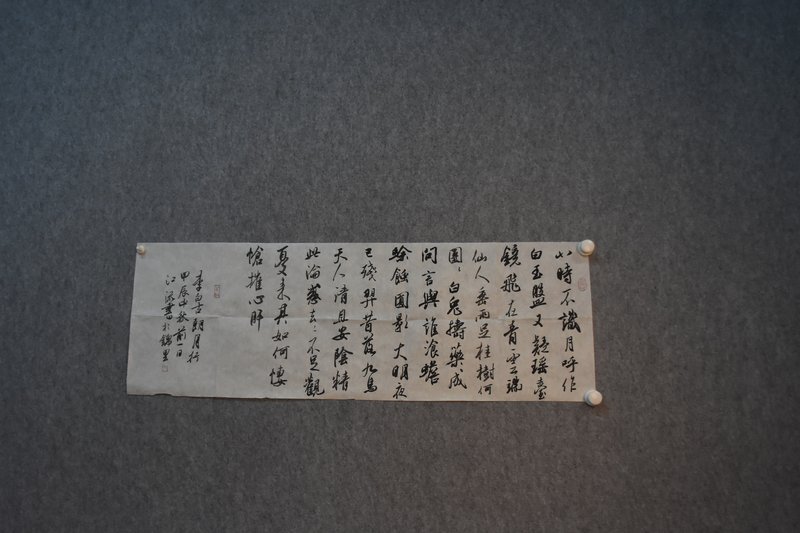 小時不識月呼作
白玉盤又疑瑶臺
鏡飛在青雲端
仙人垂兩足桂樹何
團々白兔擣藥成
問言與誰湌蟾
蜍蝕圓影大明夜
已殘羿昔落九烏
天人清且安陰精
此淪惑去々不足觀
憂來其如何悽
愴摧心肝
李白古朗月行
甲辰中秋前一日
江書於錦里